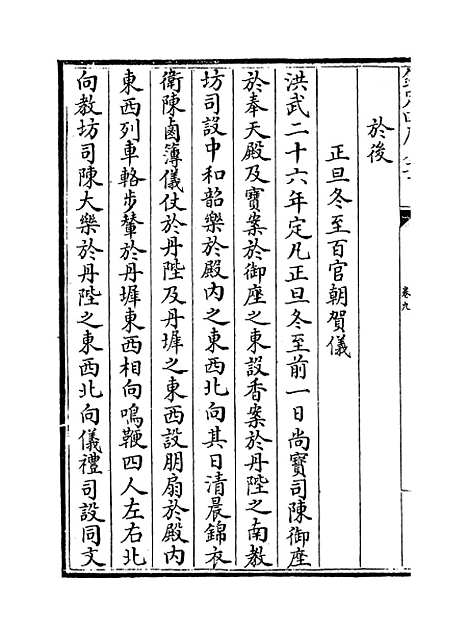 於後
正旦冬至百官朝賀儀
洪武二十六年定凡正旦冬至前一日尚寶司陳御座
於奉天殿及寶案於御座之東設香案於丹陛之南教
坊司設中和韶樂於殿內之東西北向其日清晨錦衣
衛陳鹵簿儀仗於丹陛及丹墀之東西設朋扇於殿內
東西列車輅步輦於丹墀東西相向鳴鞭四人左右北
向教坊司陳大樂於丹陛之東西北向儀禮司設同文
卷九